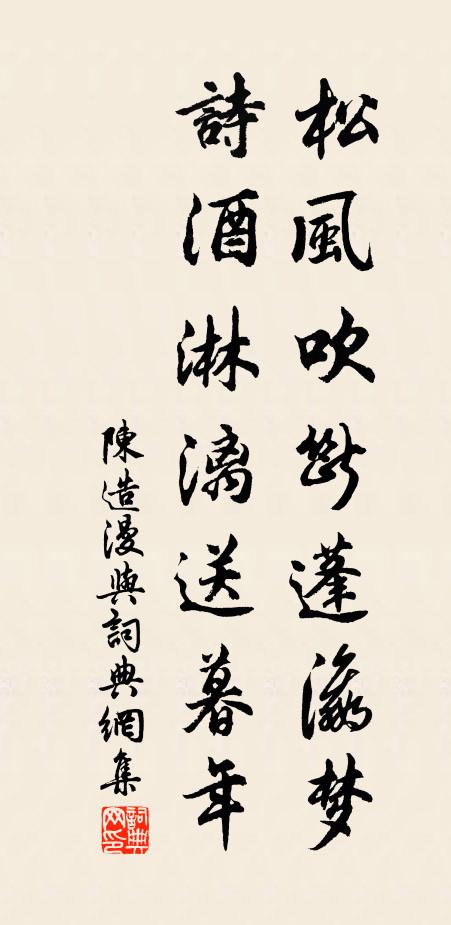 松風吹斷蓬瀛梦
詩酒淋漓送暮年
陳造漫與詞典網集
詞典网印